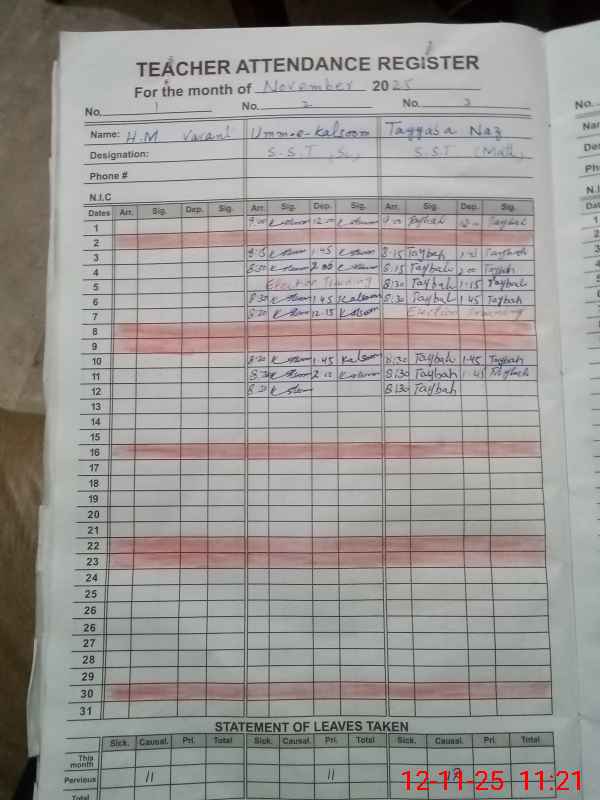 TEACHER ATTENDANCE REGISTER
For the month of November 2025
No. 1 No. 2 No. 3
Name: H.M Vacant Umm-e-Kalsoom Tayyaba Naz
Designation: S.S.T (Sc) S.S.T (Math)
Phone #
N.I.C
Dates Arr. Sig. Dep. Sig. Arr. Sig. Dep. Sig. Arr. Sig. Dep. Sig.
1 9:00 12:00 Taybah 12:00 Taybah
2
3 1:45 8:15 Taybah Taybah
4 8:30 2:00 8:15 Taybah 2:00 Taybah
5 Election Training 8:30 Taybah 1:15 Taybah
6 8:30 1:45 Kalsoom 8:30 Taybah 1:45 Taybah
7 8:30 12:15 Kalsoom Election Training
8
9
10 8:30 1:45 Kalsoom 8:30 Taybah 1:45 Taybah
11 8:30 8:30 Taybah 1:45 Taybah
12 8:30 8:30 Taybah
13
14
15
16
17
18
19
20
21
22
23
24
25
26
26
27
28
29
30
31
STATEMENT OF LEAVES TAKEN
Sick. Causal. Pri. Total Sick. Causal. Pri. Total Sick. Causal. Pri. Total
This month
Pervious 11 11
Total
12-11-25 11:21
No.
Nam
Des
Pho
N.I.C